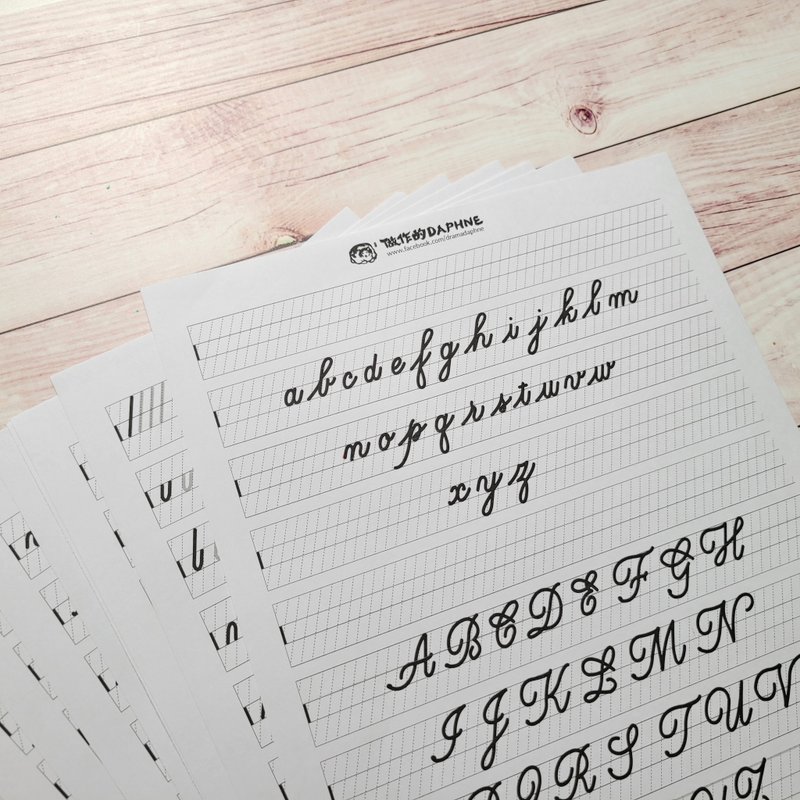 做作的DAPHNE
www.facebook.com/dramadaphne
a b c d e f g h i j k l m
n o p q r s t u v w
x y z
A B C D E F G H
I J K L M N
P Q R S T U V
l
u
l
n
n